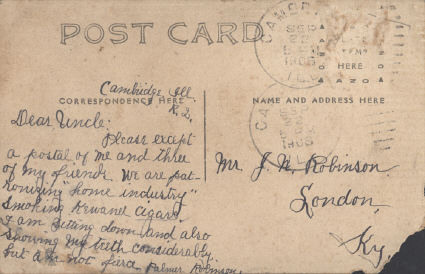 POST CARD
CAMBR
SEP
22
1906
ILL.
HERE
Cambridge, Ill.
R. 2.
CORRESPONDENCE HERE
NAME AND ADDRESS HERE
Dear Uncle:
Please except
a postal of me and three
of my friends. We are pat-
ronizing "home industry"
smoking Kewanee cigars.
I am sitting down and also
showing my teeth considerably.
but am not fierce. Palmer Robinson.
Mr. J. N. Robinson
London,
Ky.